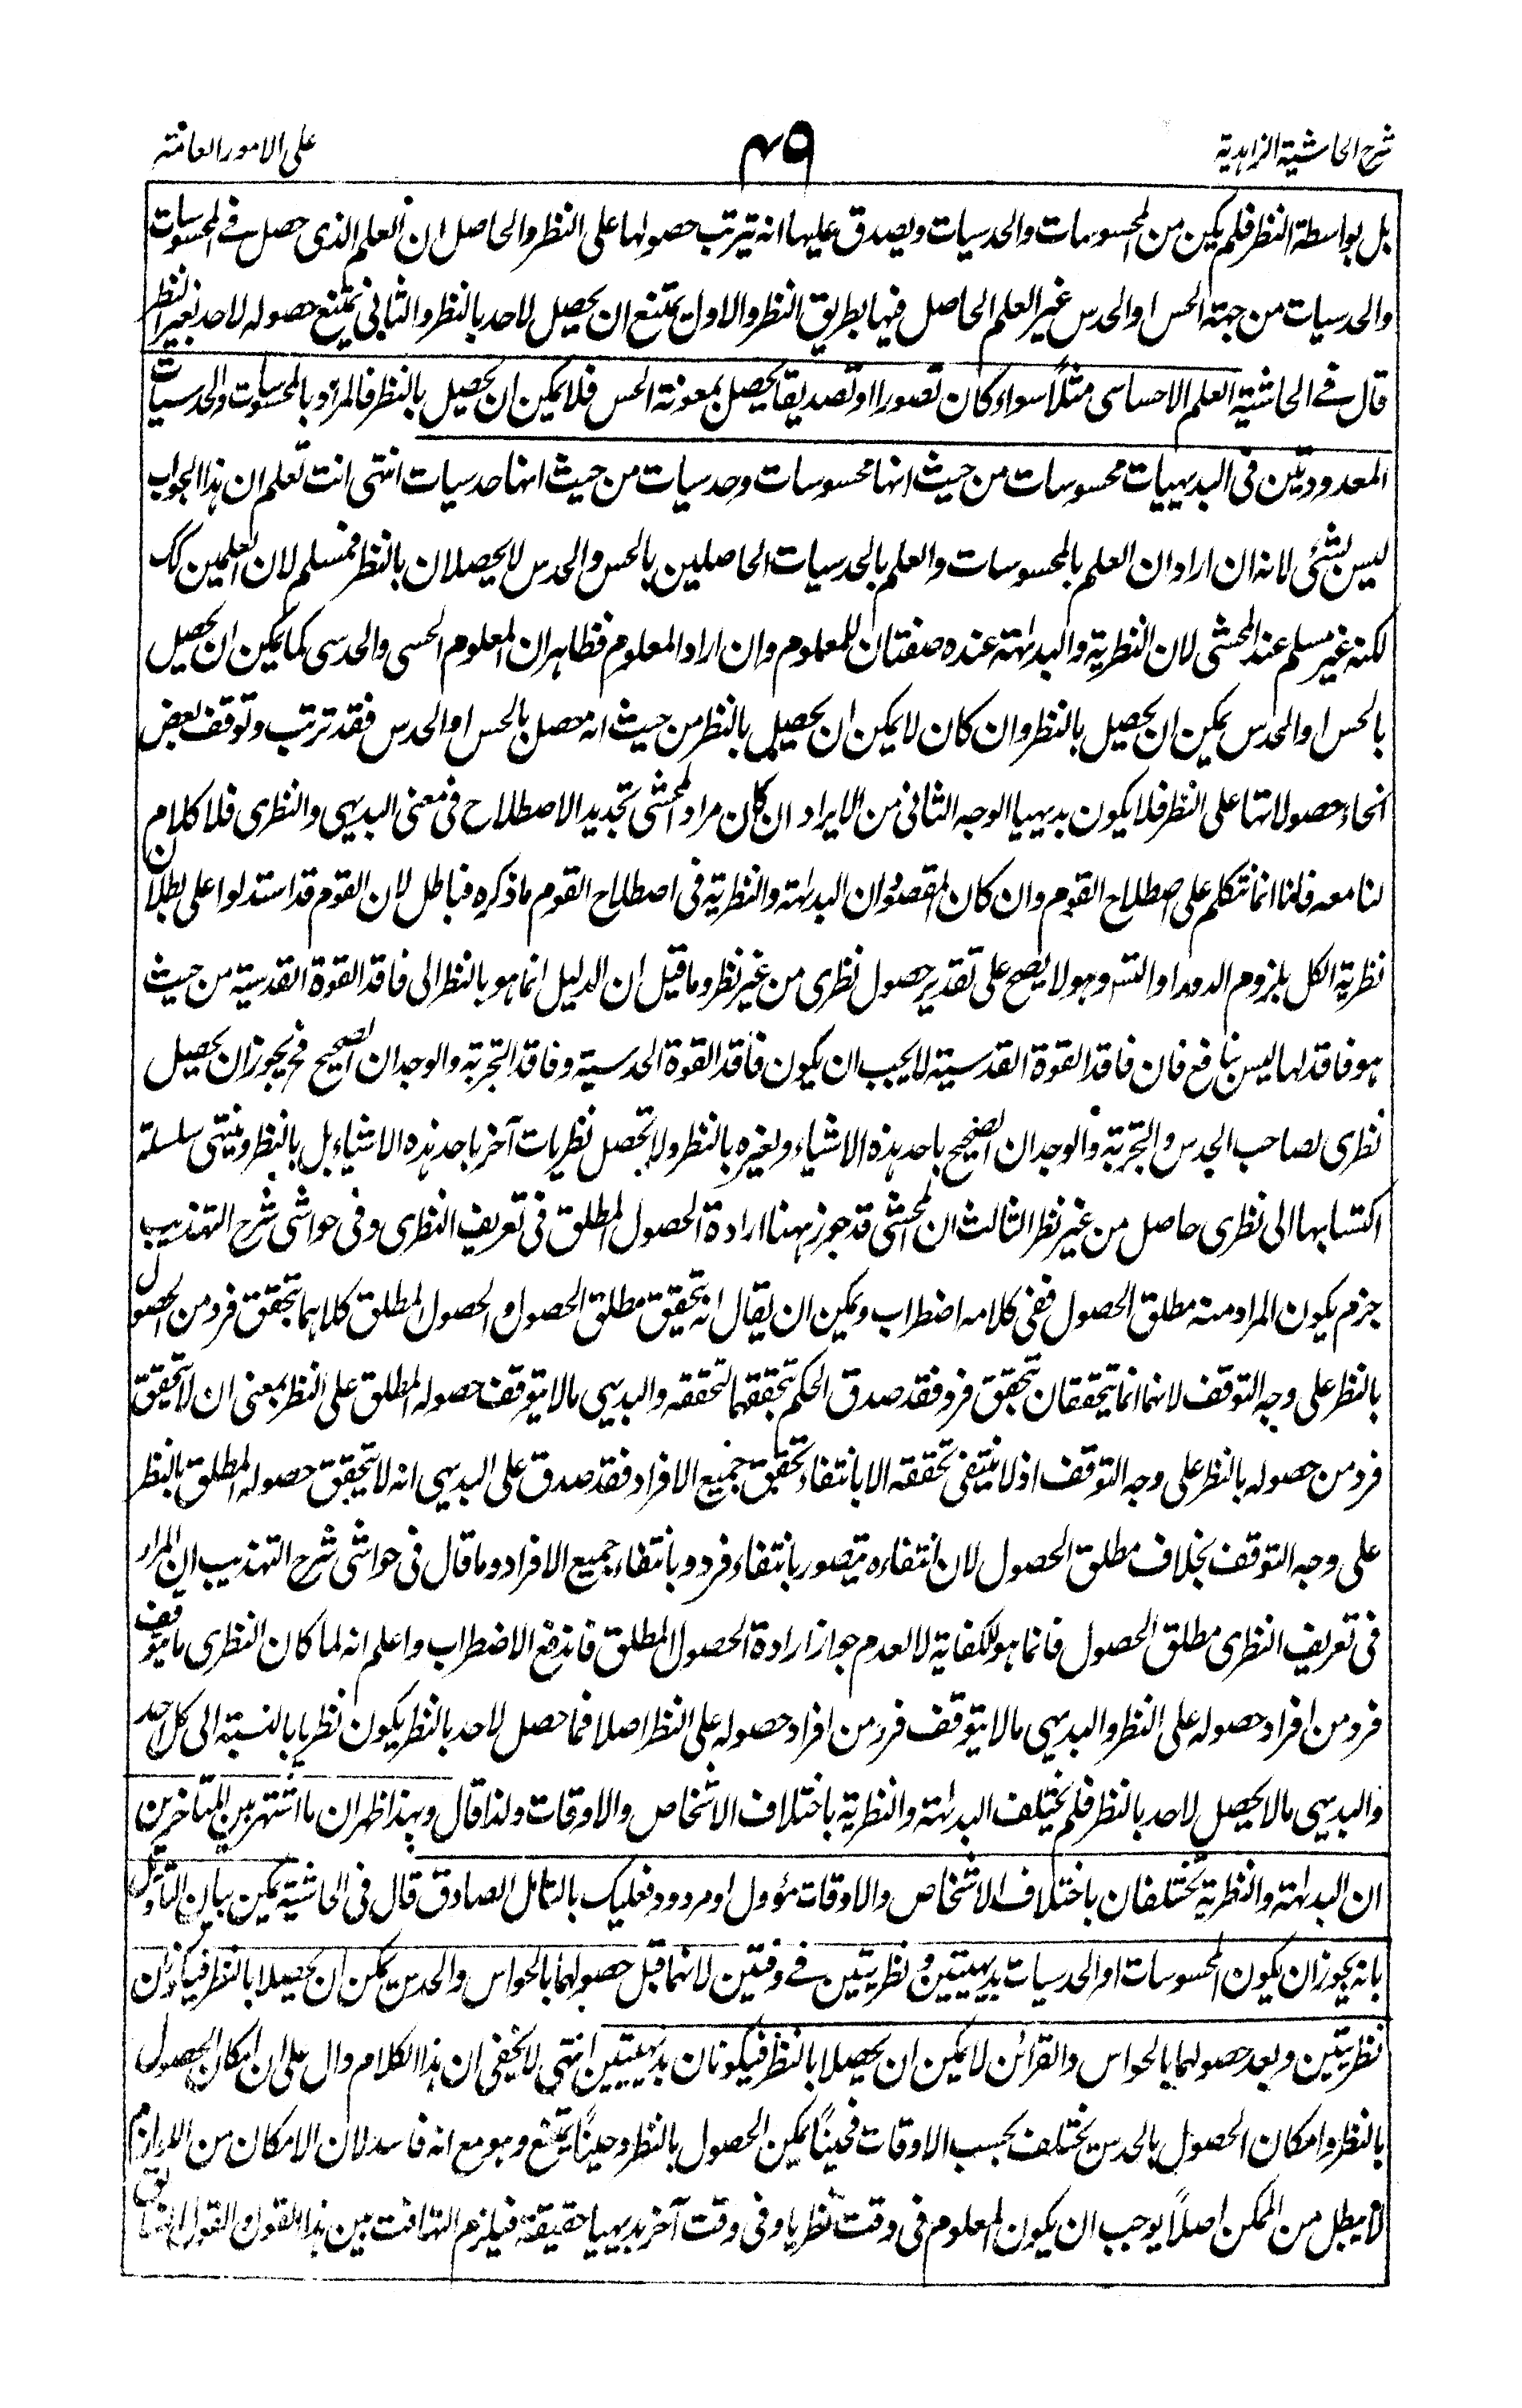 شرح الحاشية الزاهدية
٤٩
على الامور العامة
بل بواسطة النظر فلم يكن من المحسوسات والحدسيات ويصدق عليها انه يترتب حصولها على النظر والحاصل ان العلم الذى حصل فى المحسوسات
والحدسيات من جهة الحس او الحدس غير العلم الحاصل فيها بطريق النظر والاول يمتنع ان يحصل لاحد بالنظر والثانى يمتنع حصوله لاحد بغير النظر
قال فى الحاشية العلم الاحساسى مثلاً سواء كان تصورا او تصديقا يحصل بمعونة الحس فلا يمكن ان يحصل بالنظر فالمراد بالمحسوسات والحدسيات
المعدودتين فى البديهيات محسوسات من حيث انها محسوسات وحدسيات من حيث انها حدسيات انتهى انت تعلم ان هذا الجواب
ليس بشئى لانه ان اراد ان العلم بالمحسوسات والعلم بالحدسيات الحاصلين بالحس والحدس لا يحصلان بالنظر فمسلم لان العلمين كك
لكنه غير مسلم عند المحشى لان النظرية والبداهة عنده صفتان للمعلوم وان اراد المعلوم فظاهر ان المعلوم الحسى والحدسى كما يمكن ان يحصل
بالحس او الحدس يمكن ان يحصل بالنظر وان كان لا يمكن ان يحصل بالنظر من حيث انه محصل بالحس او الحدس فقد ترتب وتوقف بعض
انحاء حصولاتها على النظر فلا يكون بديهيا الوجه الثانى من الايراد ان كان مراد المحشى تجديد الاصطلاح فى معنى البديهى والنظرى فلا كلام
لنا معه فانا انما نتكلم على اصطلاح القوم وان كان المقصود ان البداهة والنظرية فى اصطلاح القوم ما ذكره فباطل لان القوم قد استدلوا على بطلان
نظرية الكل بلزوم الدور او التس وهو لا يصح على تقدير حصول نظرى من غير نظر وما قيل ان الدليل انما هو بالنظر الى فاقد القوة القدسية من حيث
هو فاقد لها ليس بنافع فان فاقد القوة القدسية لا يجب ان يكون فاقد القوة الحدسية وفاقد التجربة والوجدان الصحيح فح يجوز ان يحصل
نظرى لصاحب الحدس والتجربة والوجدان الصحيح باحد هذه الاشياء ولغيره بالنظر ولا تحصل نظريات آخر باحد هذه الاشياء بل بالنظر وينتهى سلسلة
اكتسابها الى نظرى حاصل من غير نظر الثالث ان المحشى قد جوز ههنا ارادة الحصول المطلق فى تعريف النظرى وفى حواشى شرح التهذيب
جزم يكون المراد منه مطلق الحصول ففى كلامه اضطراب ويمكن ان يقال انه تحقيق مطلق الحصول والحصول المطلق كلاهما بتحقق فرد من الحصول
بالنظر على وجه التوقف لانهما انما يتحققان بتحقق فرد فقد صدق الحكم بتحققهما لتحققه والبديهى مالا يتوقف حصوله المطلق على النظر بمعنى ان لا يتحقق
فرد من حصوله بالنظر على وجه التوقف اذ لا ينتفى تحققه الا بانتفاء تحقق جميع الافراد فقد صدق على البديهى انه لا يتحقق حصوله المطلق بالنظر
على وجه التوقف بخلاف مطلق الحصول لان انتفاءه يتصور بانتفاء فرد وبانتفاء جميع الافراد وما قال فى حواشى شرح التهذيب ان المراد
فى تعريف النظرى مطلق الحصول فانما هو للكفاية لا لعدم جواز ارادة الحصول المطلق فاندفع الاضطراب واعلم انه لما كان النظرى ما يتوقف
فرد من افراد حصوله على النظر والبديهى مالا يتوقف فرد من افراد حصوله على النظر اصلا فما حصل لاحد بالنظر يكون نظريا بالنسبة الى كل احد
والبديهى مالا يحصل لاحد بالنظر فلم يختلف البداهة والنظرية باختلاف الاشخاص والاوقات ولذا قال وبهذا ظهر ان ما اشتهر بين المتاخرين
ان البداهة والنظرية تختلفان باختلاف الاشخاص والاوقات مؤول او مردود فعليك بالتامل الصادق قال فى الحاشية يمكن بيان التاويل
بانه يجوز ان يكون المحسوسات او الحدسيات بديهيتين ونظريتين فى وقتين لانهما قبل حصولهما بالحواس والحدس يمكن ان يحصلا بالنظر فيكونان
نظريتين وبعد حصولهما بالحواس والقرائن لا يمكن ان يحصلا بالنظر فيكونان بديهيتين انتهى لا يخفى ان هذا الكلام دال على ان امكان الحصول
بالنظر وامكان الحصول بالحدس يختلف بحسب الاوقات فحيناً يمكن الحصول بالنظر وحيناً يمتنع وهو مع انه فاسد لان الامكان من اللوازم
لا يبطل من الممكن اصلاً يوجب ان يكون المعلوم فى وقت نظريا وفى وقت آخر بديهيا حقيقة فيلزم التهافت بين هذا القول والقول السابق